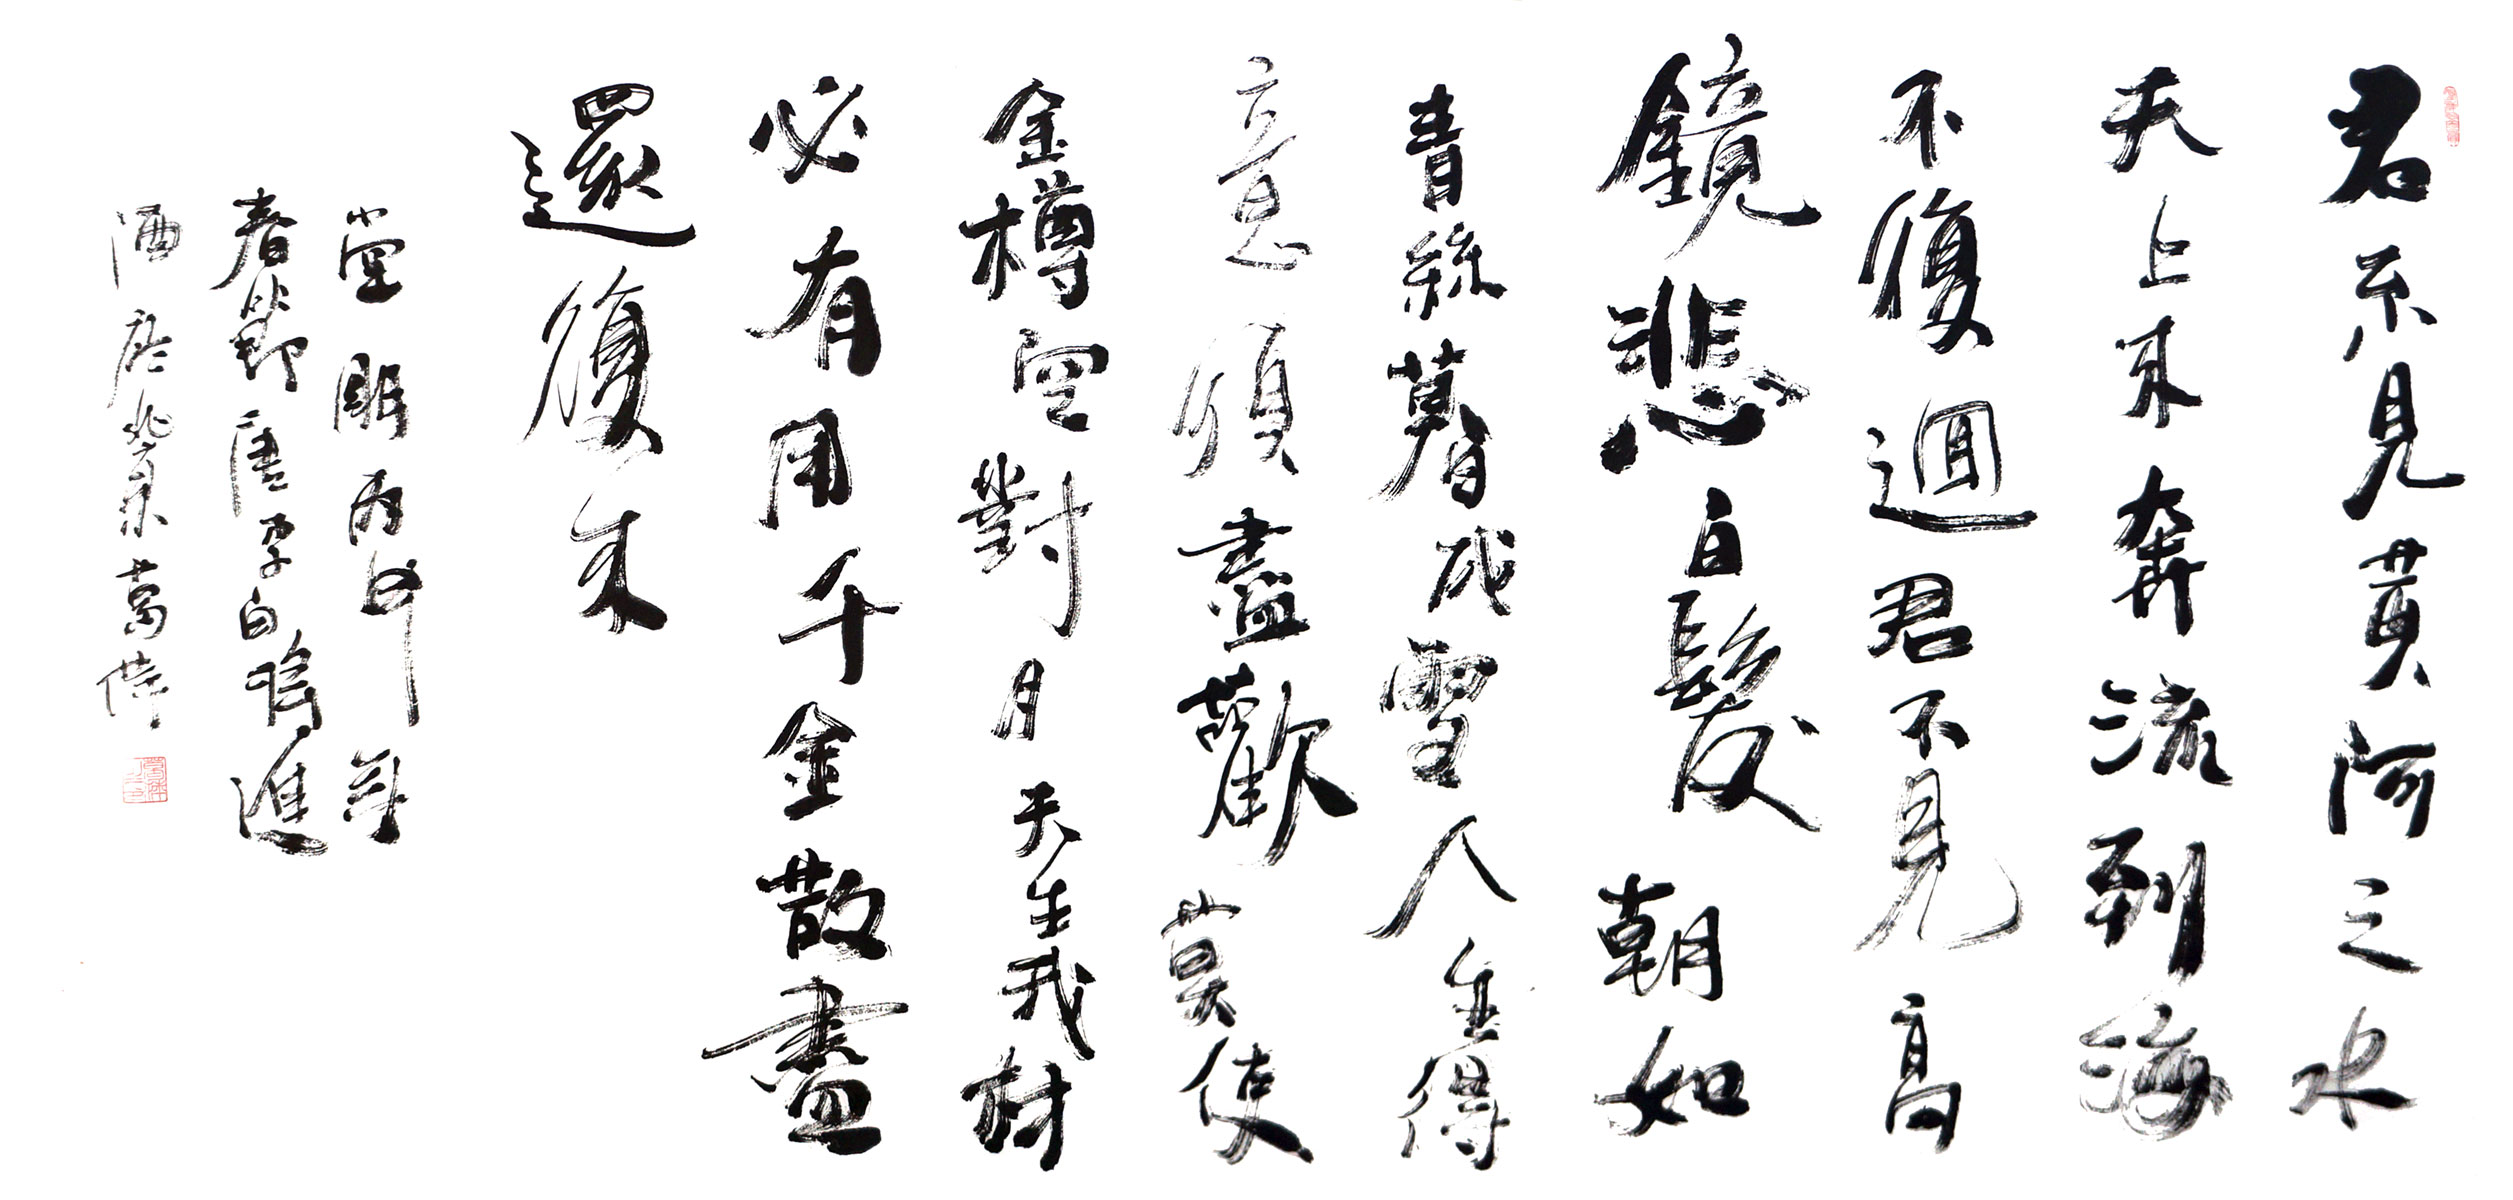 君不見黃河之水
天上来奔流到海
不復迴君不見高
鏡悲白髮朝如
青絲暮成雪人生得
意須盡歡莫使
金樽空對月天生我材
必有用千金散盡
還復来
堂明
春節唐李白將進
酒